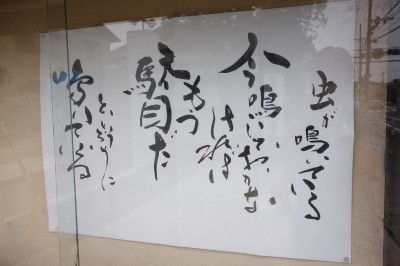 虫が鳴いてゐる
今鳴いておかな
ければ
もう
駄目だ
というように
鳴いてゐる